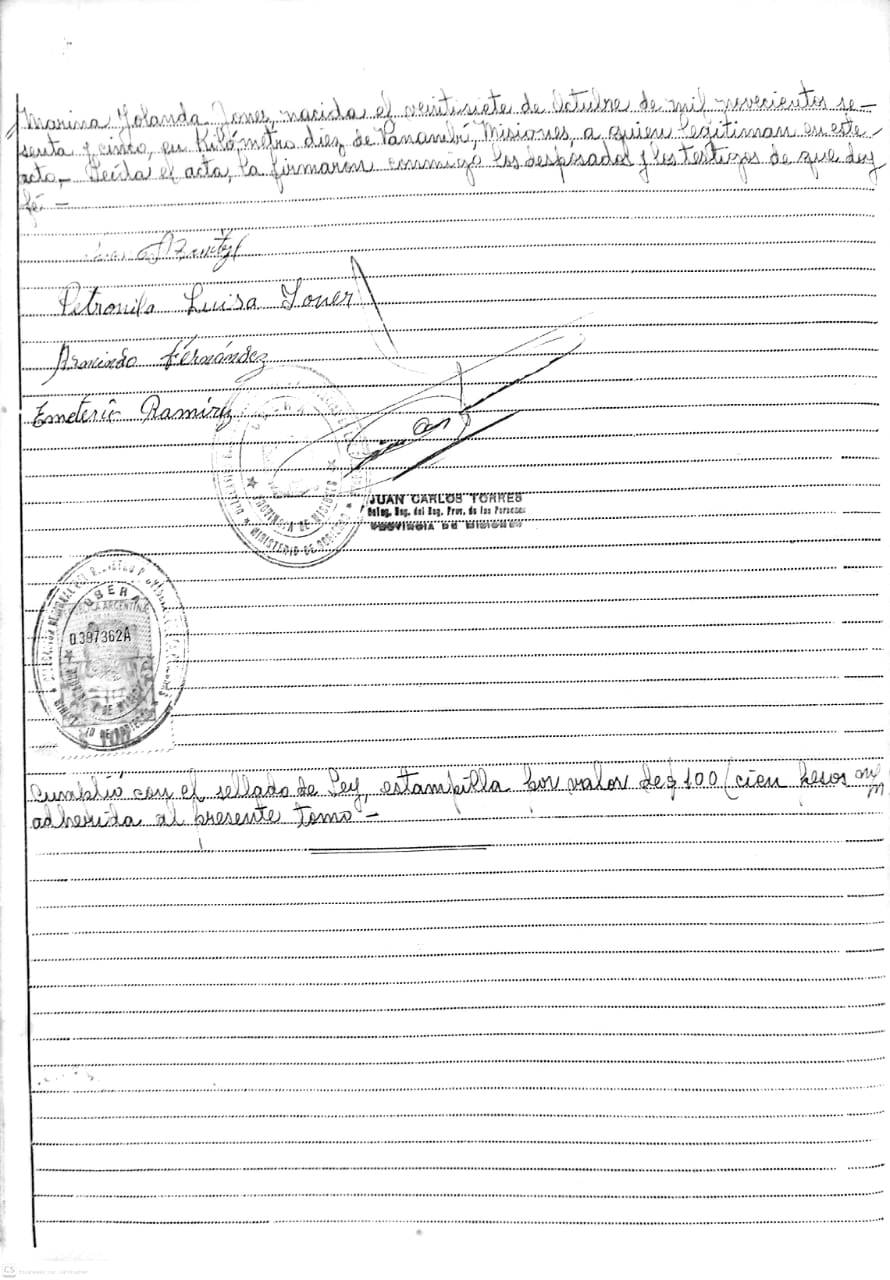 Marina Yolanda Joner, nacida el veintisiete de Octubre de mil novecientos se-
senta y cinco, en Kilómetro diez de Panambí, Misiones, a quien legitiman en este
acto.- Leída el acta, la firmaron conmigo los desposados y los testigos de que doy
fé.-
Petronila Luisa Joner
Armindo Fernández
Emeterio Ramirez
PROVINCIA DE MISIONES
MINISTERIO DE GOBIERNO
JUAN CARLOS TORRES
Deleg. Reg. del Reg. Prov. de las Personas
PROVINCIA DE MISIONES
OBERA
REPUBLICA ARGENTINA
0.397362A
Cumplió con el sellado de Ley, estampilla por valor de $ 100 (cien pesos m/n
adherida al presente tomo-